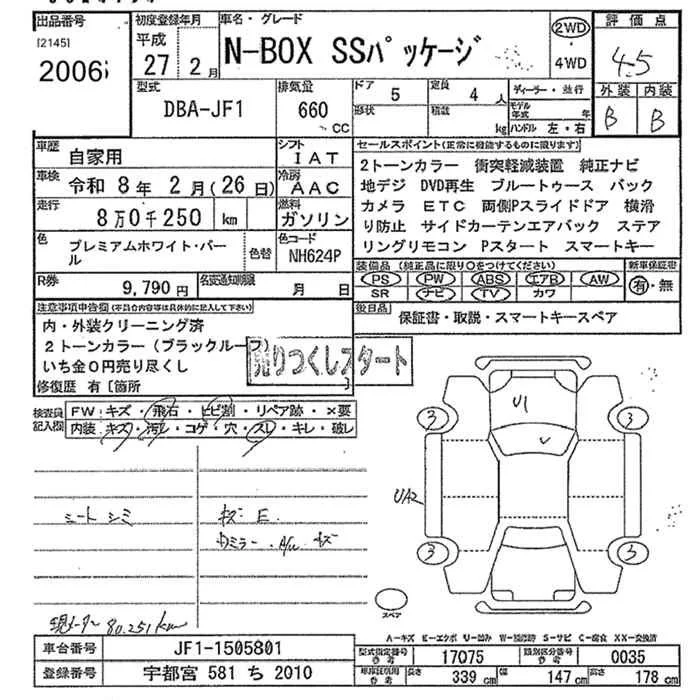 出品番号
[2145]
2006
初度登録年月
平成
27年 2月
車名・グレード
N-BOX SSパッケージ
2WD
・
4WD
評価点
4.5
外装 内装
B B
型式
DBA-JF1
排気量
660 CC
ドア
5
形状
定員
4 人
積載
kg
ディーラー・並行
モデル年式 年
ハンドル 左・右
車歴
自家用
シフト
IAT
車検
令和 8年 2月(26日)
冷房
AAC
走行
8万0千250 km
燃料
ガソリン
色
プレミアムホワイト・パール
色替
色コード
NH624P
R券
9,790円
名変通知期限
月 日
セールスポイント(正常に機能するものに限ります)
2トーンカラー 衝突軽減装置 純正ナビ
地デジ DVD再生 ブルートゥース バック
カメラ ETC 両側Pスライドドア 横滑
り防止 サイドカーテンエアバック ステア
リングリモコン Pスタート スマートキー
装備品(純正品に限り○をつけてください)
PS PW ABS エアB AW
SR ナビ TV カワ
新車保証書
有・無
後日品
保証書・取説・スマートキースペア
注意事項申告欄(不具合内容等は具体的に記入して下さい)
内・外装クリーニング済
2トーンカラー(ブラックルーフ)
いち金0円売り尽くし
修復歴 有[箇所 ]
売りつくしスタート
検査員記入欄
FW:キズ・飛石・ヒビ割・リペア跡・×要
内装:キズ・汚レ・コゲ・穴・スレ・キレ・破レ
シートシミ
キズ E.
現メーター 80.251km
U1
UA2
3
3
3
3
スペア
A-キズ E-エクボ U-凹み W-補修跡 S-サビ C-腐食 XX-交換済
車台番号
JF1-1505801
登録番号
宇都宮 581 ち 2010
型式指定番号
参考
17075
類別区分番号
参考
0035
参考
長さ
339 cm
幅
147 cm
高さ
178 cm